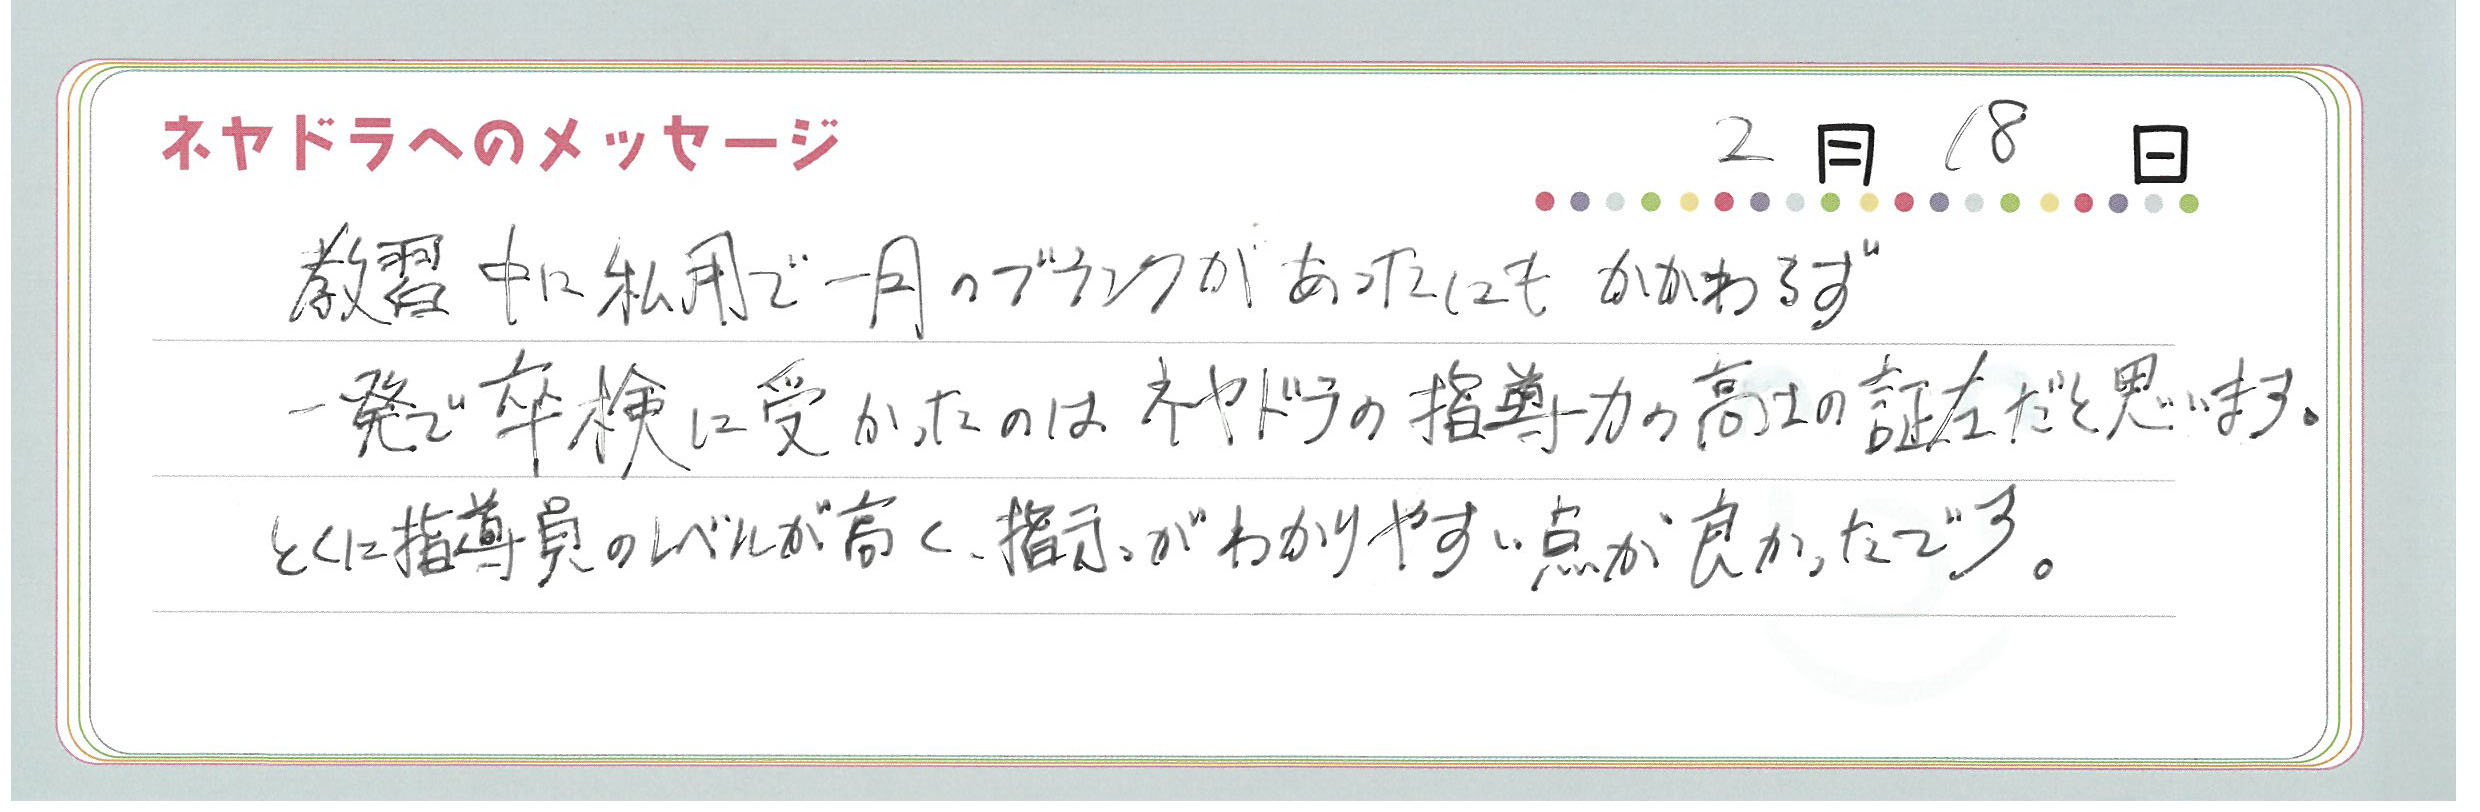 ネヤドラへのメッセージ
2月18日
教習中に私用で一月のブランクがあったにもかかわるず
一発で卒検に受かったのはネヤドラの指導力の高さの証左だと思います。
とくに指導員のレベルが高く、指示がわかりやすい点が良かったです。